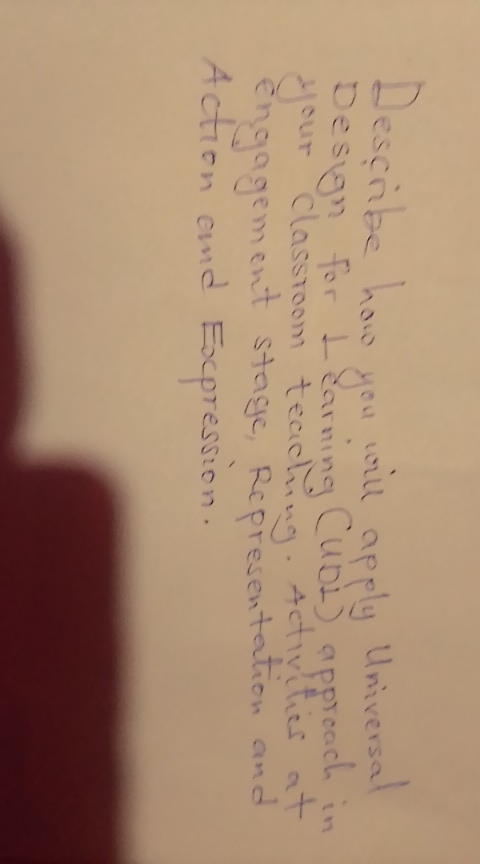 Describe how you will apply Universal
Design for Learning (UDL) approach in
your classroom teaching. Activities at
engagement stage, Representation and
Action and Expression.